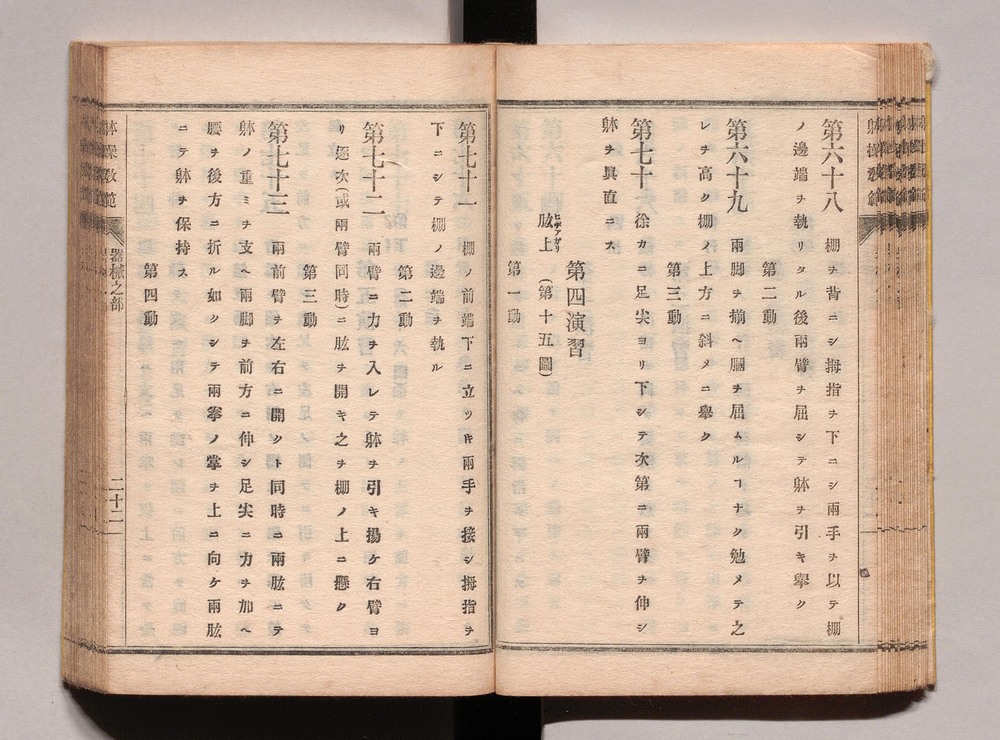 躰操敎範
第六十八　棚ヲ背ニシ拇指ヲ下ニシ兩手ヲ以テ棚
ノ邊端ヲ執リタル後兩臂ヲ屈シテ躰ヲ引キ擧ク
第二動
第六十九　兩脚ヲ揃ヘ膕ヲ屈ムルヿナク勉メテ之
レヲ高ク棚ノ上方ニ斜メニ擧ク
第三動
第七十　徐カニ足尖ヨリ下シテ次第ニ兩臂ヲ伸シ
躰ヲ眞直ニス
第四演習
肱上（第十五圖）
第一動
第七十一　棚ノ前端下ニ立ツキ兩手ヲ接シ拇指ヲ
下ニシテ棚ノ邊端ヲ執ル
第二動
第七十二　兩臂ニ力ヲ入レテ躰ヲ引キ揚ケ右臂ヨ
リ逐次（或兩臂同時）ニ肱ヲ開キ之ヲ棚ノ上ニ懸ク
第三動
第七十三　兩前臂ヲ左右ニ開クト同時ニ兩肱ニテ
躰ノ重ミヲ支ヘ兩脚ヲ前方ニ伸シ足尖ニ力ヲ加ヘ
腰ヲ後方ニ折ル如クシテ兩拳ノ掌ヲ上ニ向ケ兩肱
ニテ躰ヲ保持ス
第四動
体操敎範
器械之部
二十二